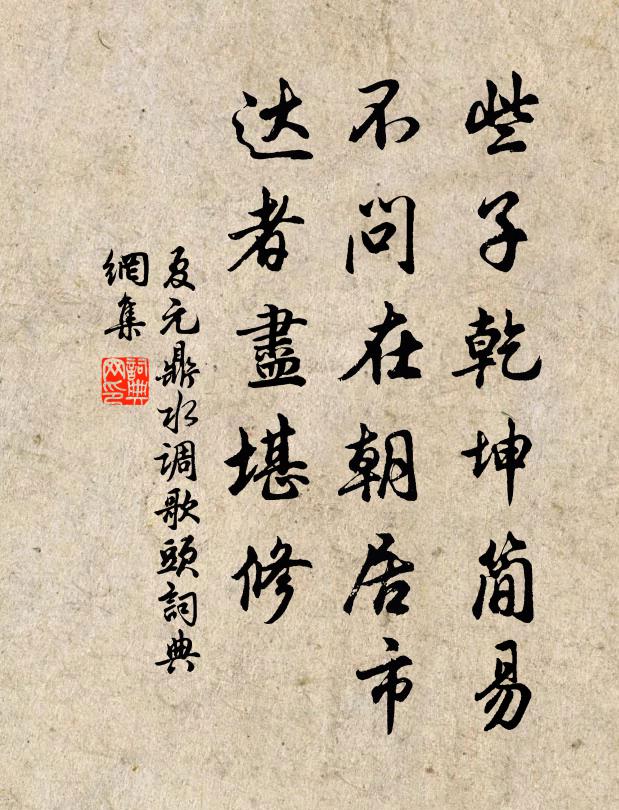 些子乾坤简易
不问在朝居市
达者盡堪修
夏元鼎水调歌頭詞典
網集
詞典網印